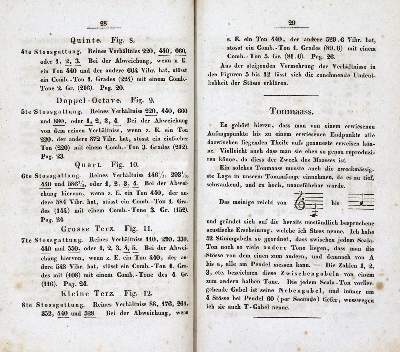 28
Quinte. Fig. 8.
4te Stossgattung. Reines Verhältniss 220, 440, 660,
oder 1, 2, 3. Bei der Abweichung, wenn z. E.
ein Ton 440 und der andere 664 Vibr. hat, stösst
ein Comb.-Ton 1. Grades (224) mit einem Comb.-
Ton 2. Gr. (216). Pag. 20.
Doppel-Octave. Fig. 9.
5te Stossgattung. Reines Verhältniss 220, 440, 660
und 880, oder 1, 2, 3, 4. Bei der Abweichung
von dem reinen Verhältniss, wenn z. E. ein Ton
220, der andere 872 Vibr. hat, stösst ein einfacher
Ton (220) mit einem Comb.-Ton 3. Grades (212)
Pag. 23.
Quart. Fig. 10.
6te Stossgattung. Reines Verhältniss
440 und oder 1, 2, 3, 4. Bei der Abwei-
chung hievon, wenn z. E. ein Ton 440, der an-
dere 584 Vibr. hat, stösst ein Comb.-Ton 1. Gra-
des (144) mit einem Comb.-Ton 3. Gr. (152).
Pag. 24
Grosse Terz. Fig. 11.
7te Stossgattung. Reines Verhältniss 110, 220, 330,
440 und 550, oder 1, 2, 3, 4, 5. Bei der Abwei-
chung hievon, wenn z. E. ein Ton 440, der an-
dere 548 Vibr. hat, stösst ein Comb.-Ton 1. Gra-
des mit (108) mit einem Comb.-Tone des 4. Gr.
(116). Pag. 24.
Kleine Terz Fig. 12.
8te Stossgattung. Reines Verhältniss 88, 176, 264,
352, 440 und 528 Bei der Abweichung, wenn
29
z. E. ein Ton 440, der andere Vibr. hat,
stösst ein Comb.-Ton 1. Grades mit einem
Comb.-Ton 5. Gr. Pag. 26.
Aus der steigenden Vermehrung der Verhältnisse in
den Figuren 5 bis 12 lässt sich die zunehmende Undeut-
lichkeit der Stösse erklären.
Tonmaass.
Es gehört hiezu, dass man von einem erwiesenen
Anfangspunkte bis zu einem erwiesenen Endpunkte alle
dazwischen liegenden Theile aufs genaueste erweisen kön-
ne. Vielleicht auch dass man sie eben so genau reproduzi-
ren könne, da diess der Zweck des Maasses ist
Ein solches Tonmaass musste auch die zweckmässig-
ste Lage in unserm Tonumfange einnehmen, da es zu tief,
schwankend, und zu hoch, unausführbar würde.
Das meinige reicht von bis
und gründet sich auf die bereits umständlich besprochene
akustische Erscheinung, welche ich Stoss nenne. Ich habe
52 Stimmgabeln so geordnet, dass zwischen jedem Scala-
Ton noch so viele andere Töne liegen, dass man die
Stösse von dem einen zum andern, und demnach von A
bis a, alle am Pendel messen kann. — Die Zahlen 1, 2,
3, etc. bezeichnen diese Zwischengabeln von einem
zum andern halben Tone. Die jedem Scala-Ton vorher-
gehende Gabel ist seine Nebengabel, und immer um
4 Stösse bei Pendel 60 (per Secunde) tiefer, weswegen
ich sie auch T-Gabel nenne.